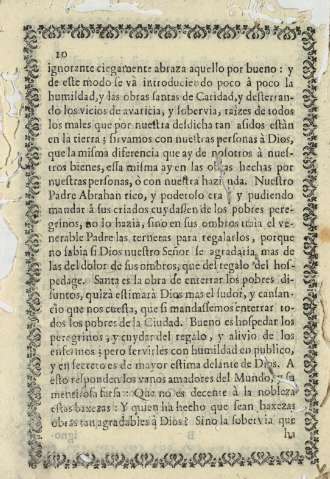 10
ignorante ciegamente abraza aquello por bueno: y
de este modo se và introduciendo poco à poco la
humildad, y las obras santas de Caridad, y desterran-
do los vicios de avaricia, y sobervia, raizes de todos
los males que por nuestra desdicha tan asidos estàn
en la tierra; sirvamos con nuestras personas à Dios,
que la misma diferencia que ay de nosotros à nues-
tros bienes, essa misma ay en las obras hechas por
nuestras personas, ò con nuestra hazienda. Nuestro
Padre Abrahan rico, y poderoso era y pudiendo
mandar à sus criados cuydassen de los pobres pere-
grinos, no lo hazia, sino en sus ombros traia el ve-
nerable Padre las terneras para regalarlos, porque
no sabia si Dios nuestro Señor se agradaria, mas de
las del dolor de sus ombros, que del regalo del hos-
pedage. Santa es la obra de enterrar los pobres di-
funtos, quizà estimarà Dios mas el sudor, y cansan-
cio que nos cuesta, que si mandassemos enterrar to-
dos los pobres de la Ciudad. Bueno es hospedar los
peregrinos, y cuydar del regalo, y alivio de los
enfermos; pero servirles con humildad en publico,
y en secreto es de mayor estima delante de Dios. A
esto responden los vanos amadores del Mundo, y su
mentirosa farsa: Que no es decente à la nobleza
estas baxezas: Y quien ha hecho que sean baxezas
obras tan agradables à Dios? Sino la sobervia que
ha